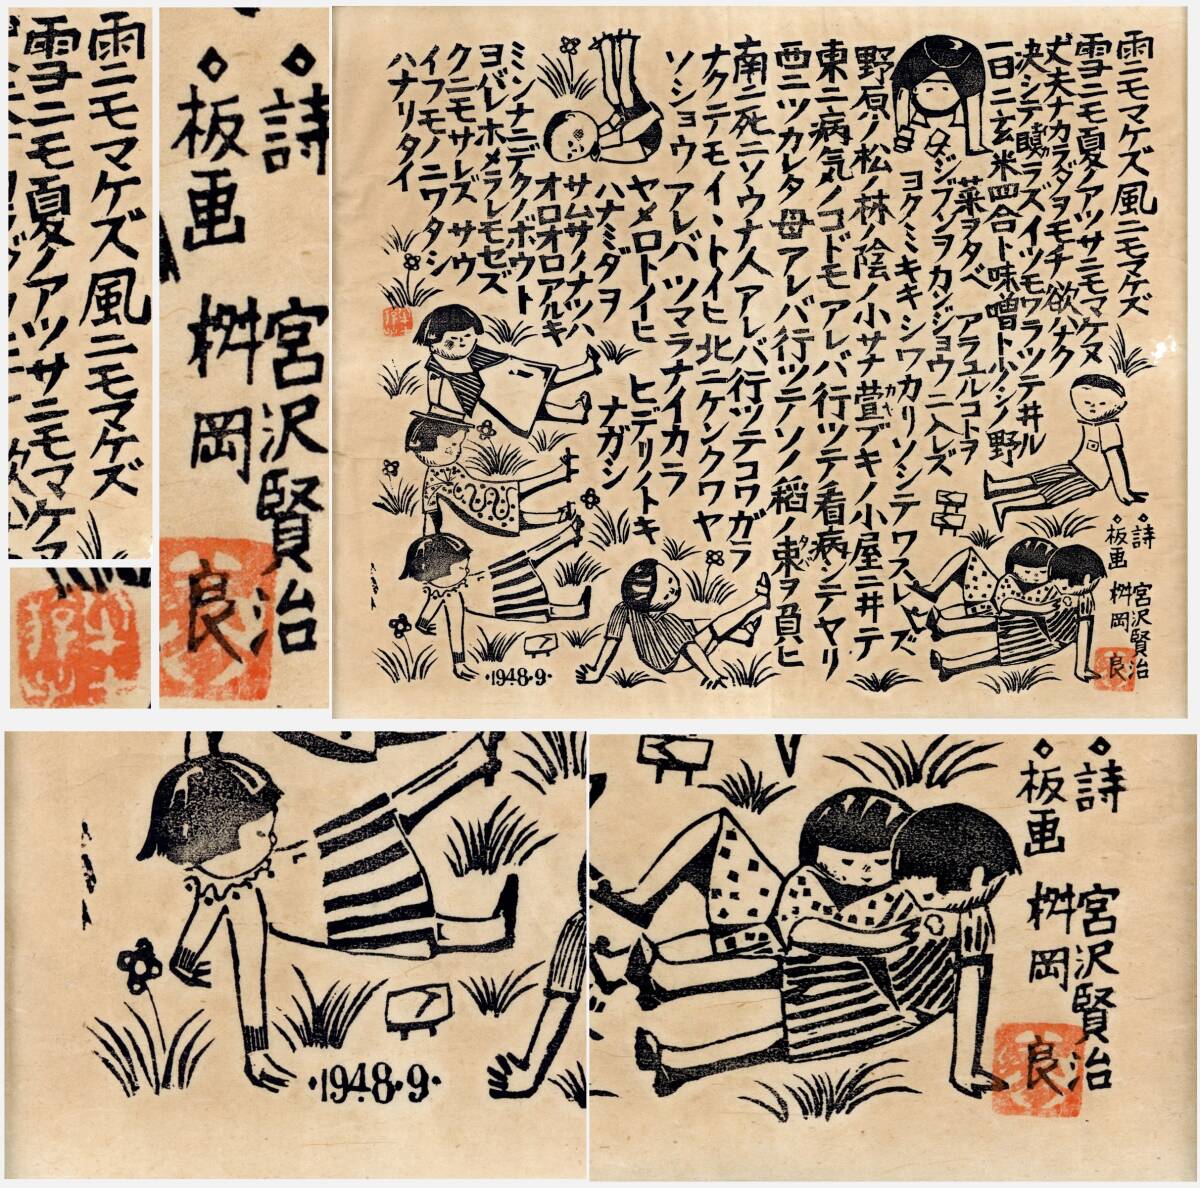 雨ニモマケズ風ニモマケズ
雪ニモ夏ノアツサニモマケ
◇詩 宮沢賢治
◇板画 桝岡 良
雨ニモマケズ風ニモマケズ
雪ニモ夏ノアツサニモマケヌ
丈夫ナカラダヲモチ欲ハナク
決シテ瞋ラズイツモワラツテ井ル
一日ニ玄米四合ト味噌ト小シノ野
菜ヲタベ アラユルコトヲ
ジブンヲカンジョウニ入レズ
ヨクミキキシワカリソシテワスレズ
野原ノ松ノ林ノ陰ノ小サナ萱ブキノ小屋ニ井テ
東ニ病気ノコドモアレバ行ツテ看病シテヤリ
西ニツカレタ母アレバ行ツテソノ稲ノ束ヲ負ヒ
南ニ死ニソウナ人アレバ行ツテコワガラ
ナクテモイヽトイヒ 北ニケンクワヤ
ソショウアレバツマラナイカラ
ヤメロトイヒ ヒデリノトキ
ハナミダヲ ナガシ
サムサノナツハ
オロオロアルキ
ミンナニデクノボウト
ヨバレホメラレモセズ
クニモサレズ サウ
イフモノニワタシ
ハナリタイ
◇詩 宮沢賢治
◇板画 桝岡 良
·1948·9·
·1948·9·
◇詩 宮沢賢治
◇板画 桝岡 良